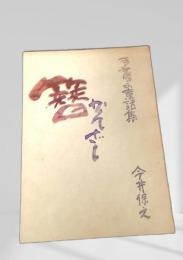 童話集
簪
かんざし
今井保之